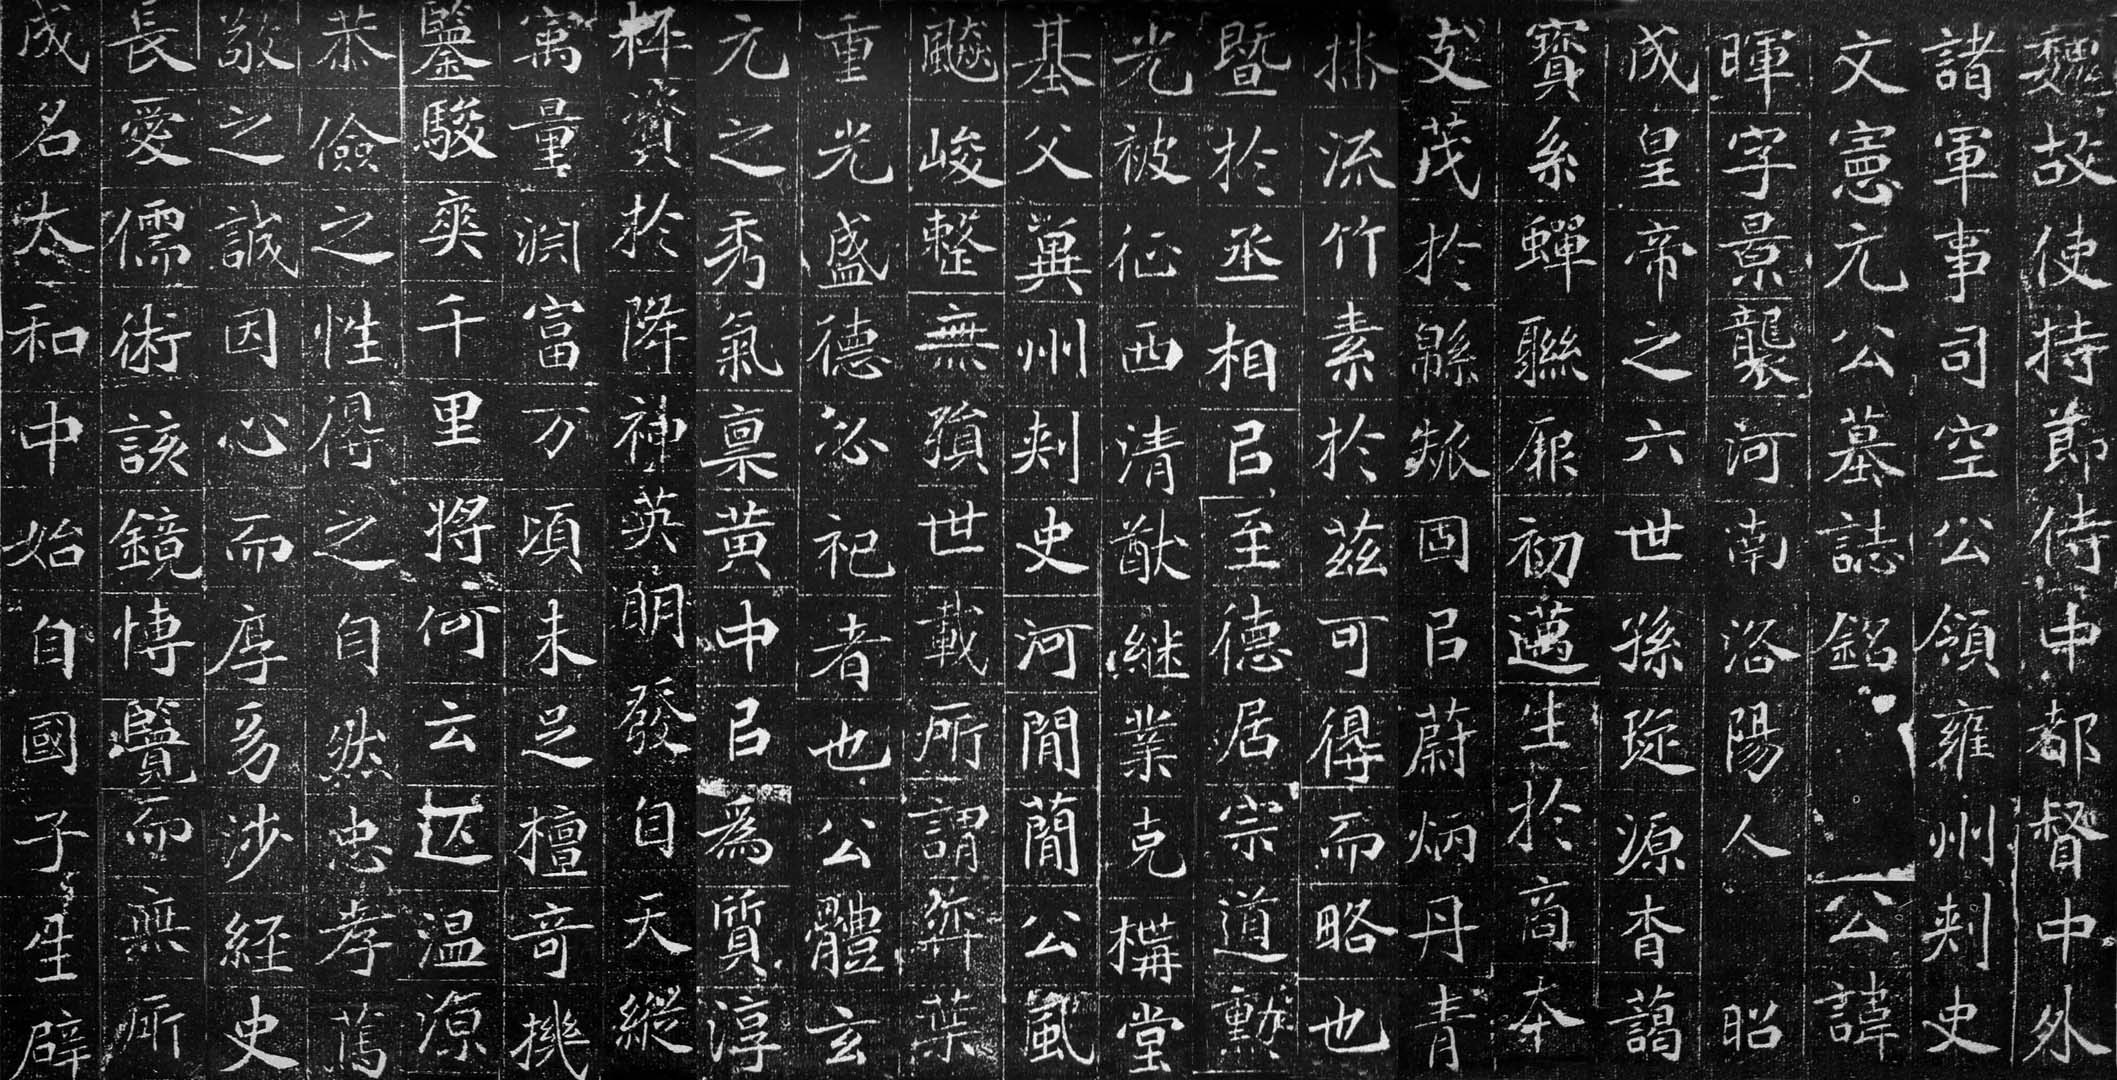 魏故使持節侍中都督中外
諸軍事司空公領雍州刾史
文憲元公墓誌銘 公諱
暉字景襲河南洛陽人 昭
成皇帝之六世孫琁源杳藹
寶系蟬聯厥初邁生於商夲
支茂於緜瓞固㠯蔚炳丹青
播流竹素於茲可得而略也
暨於丞相㠯至德居宗道勳
光被征西清猷継業克構堂
基父兾州刾史河間簡公風
飈峻整無殞世載所謂弈葉
重光盛德必祀者也公體玄
元之秀氣稟黃中㠯為質淳
粹資於降神英明發自天縱
寓量淵富万頃未足檀奇機
鑒駿爽千里將何云匹温源
恭儉之性得之自然忠孝篤
敬之誠因心而厚爰涉經史
長愛儒術該鏡博覽而無所
成名太和中始自國子生辟